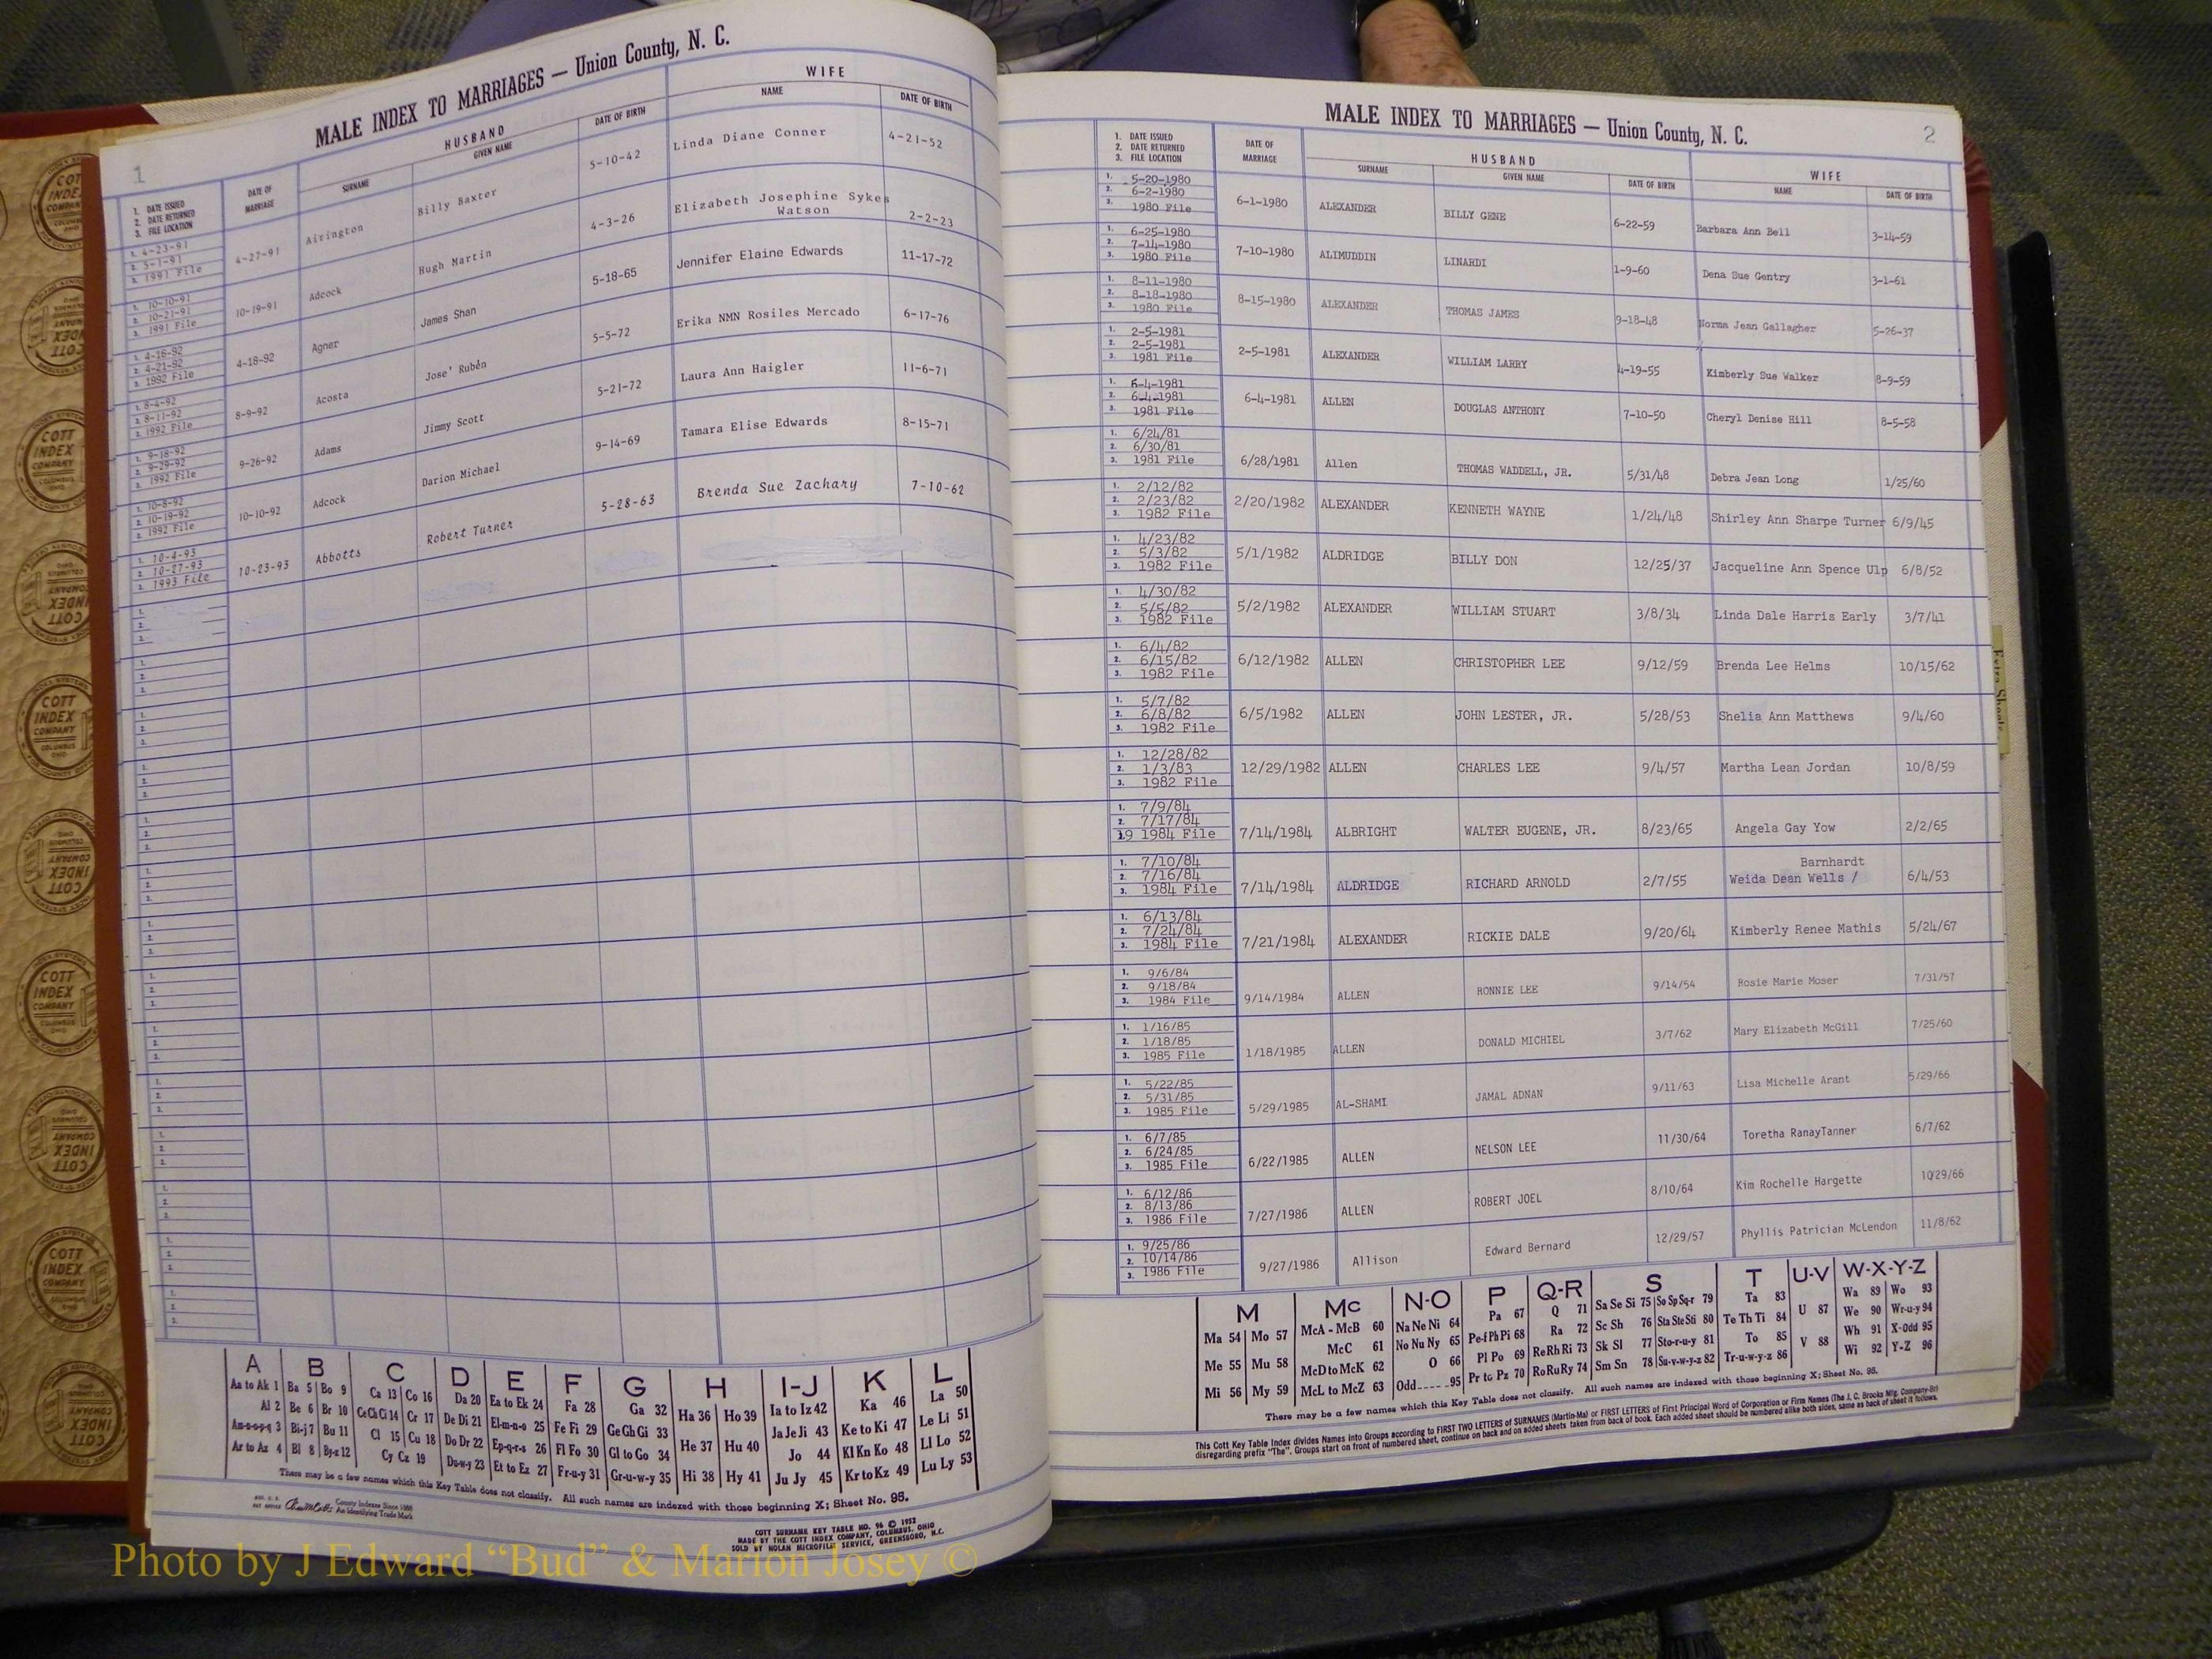 1
MALE INDEX TO MARRIAGES — Union County, N. C.
HUSBAND
WIFE
1. DATE ISSUED
2. DATE RETURNED
3. FILE LOCATION
DATE OF MARRIAGE
SURNAME
GIVEN NAME
DATE OF BIRTH
NAME
DATE OF BIRTH
1. 4-23-91
2. 5-1-91
3. 1991 File
4-27-91 Airington Billy Baxter 5-10-42 Linda Diane Conner 4-21-52
1. 10-10-91
2. 10-21-91
3. 1991 File
10-19-91 Adcock Hugh Martin 4-3-26 Elizabeth Josephine Sykes
Watson 2-2-23
1. 4-16-92
2. 4-21-92
3. 1992 File
4-18-92 Agner James Shan 5-18-65 Jennifer Elaine Edwards 11-17-72
1. 8-4-92
2. 8-11-92
3. 1992 File
8-9-92 Acosta Jose' Rubén 5-5-72 Erika NMN Rosiles Mercado 6-17-76
1. 9-18-92
2. 9-29-92
3. 1992 File
9-26-92 Adams Jimmy Scott 5-21-72 Laura Ann Haigler 11-6-71
1. 10-8-92
2. 10-19-92
3. 1992 File
10-10-92 Adcock Darion Michael 9-14-69 Tamara Elise Edwards 8-15-71
1. 10-4-93
2. 10-27-93
3. 1993 File
10-23-93 Abbotts Robert Turner 5-28-63 Brenda Sue Zachary 7-10-62
A B C D E F G H I-J K L
Aa to Ak 1 Ba 5 Bo 9 Ca 13 Co 16 Da 20 Ea to Ek 24 Fa 28 Ga 32 Ha 36 Ho 39 Ia to Iz 42 Ka 46 La 50
Al 2 Be 6 Br 10 Ce Ch Ci 14 Cr 17 De Di 21 El-m-n-o 25 Fe Fi 29 Ge Gh Gi 33 Ja Je Ji 43 Ke to Ki 47 Le Li 51
Am-n-o-p-q 3 Bi-j 7 Bu 11 Cl 15 Cu 18 Do Dr 22 Ep-q-r-s 26 Fl Fo 30 Gl to Go 34 He 37 Hu 40 Jo 44 Kl Kn Ko 48 Ll Lo 52
Ar to Az 4 Bl 8 By-z 12 Cy Cz 19 Du-w-y 23 Et to Ez 27 Fr-u-y 31 Gr-u-w-y 35 Hi 38 Hy 41 Ju Jy 45 Kr to Kz 49 Lu Ly 53
There may be a few names which this Key Table does not classify. All such names are indexed with those beginning X; Sheet No. 95.
County Indexes Since 1888
An Identifying Trade Mark
COTT SURNAME KEY TABLE NO. 96 © 1952
MADE BY THE COTT INDEX COMPANY, COLUMBUS, OHIO
SOLD BY NOLAN MICROFILM SERVICE, GREENSBORO, N.C.
MALE INDEX TO MARRIAGES — Union County, N. C.
2
1. DATE ISSUED
2. DATE RETURNED
3. FILE LOCATION
DATE OF MARRIAGE
HUSBAND
SURNAME
GIVEN NAME
DATE OF BIRTH
WIFE
NAME
DATE OF BIRTH
1. 5-20-1980
2. 6-2-1980
3. 1980 File
6-1-1980 ALEXANDER BILLY GENE 6-22-59 Barbara Ann Bell 3-14-59
1. 6-25-1980
2. 7-14-1980
3. 1980 File
7-10-1980 ALIMUDDIN LINARDI 1-9-60 Dena Sue Gentry 3-1-61
1. 8-11-1980
2. 8-18-1980
3. 1980 File
8-15-1980 ALEXANDER THOMAS JAMES 9-18-48 Norma Jean Gallagher 5-26-37
1. 2-5-1981
2. 2-5-1981
3. 1981 File
2-5-1981 ALEXANDER WILLIAM LARRY 4-19-55 Kimberly Sue Walker 8-9-59
1. 6-4-1981
2. 6-4-1981
3. 1981 File
6-4-1981 ALLEN DOUGLAS ANTHONY 7-10-50 Cheryl Denise Hill 8-5-58
1. 6/24/81
2. 6/30/81
3. 1981 File
6/28/1981 Allen THOMAS WADDELL, JR. 5/31/48 Debra Jean Long 1/25/60
1. 2/12/82
2. 2/23/82
3. 1982 File
2/20/1982 ALEXANDER KENNETH WAYNE 1/24/48 Shirley Ann Sharpe Turner 6/9/45
1. 4/23/82
2. 5/3/82
3. 1982 File
5/1/1982 ALDRIDGE BILLY DON 12/25/37 Jacqueline Ann Spence Ulp 6/8/52
1. 4/30/82
2. 5/5/82
3. 1982 File
5/2/1982 ALEXANDER WILLIAM STUART 3/8/34 Linda Dale Harris Early 3/7/41
1. 6/4/82
2. 6/15/82
3. 1982 File
6/12/1982 ALLEN CHRISTOPHER LEE 9/12/59 Brenda Lee Helms 10/15/62
1. 5/7/82
2. 6/8/82
3. 1982 File
6/5/1982 ALLEN JOHN LESTER, JR. 5/28/53 Shelia Ann Matthews 9/4/60
1. 12/28/82
2. 1/3/83
3. 1982 File
12/29/1982 ALLEN CHARLES LEE 9/4/57 Martha Lean Jordan 10/8/59
1. 7/9/84
2. 7/17/84
19 1984 File
7/14/1984 ALBRIGHT WALTER EUGENE, JR. 8/23/65 Angela Gay Yow 2/2/65
1. 7/10/84
2. 7/16/84
3. 1984 File
Barnhardt
7/14/1984 ALDRIDGE RICHARD ARNOLD 2/7/55 Weida Dean Wells / 6/4/53
1. 6/13/84
2. 7/24/84
3. 1984 File
7/21/1984 ALEXANDER RICKIE DALE 9/20/64 Kimberly Renee Mathis 5/24/67
1. 9/6/84
2. 9/18/84
3. 1984 File
9/14/1984 ALLEN RONNIE LEE 9/14/54 Rosie Marie Moser 7/31/57
1. 1/16/85
2. 1/18/85
3. 1985 File
1/18/1985 ALLEN DONALD MICHIEL 3/7/62 Mary Elizabeth McGill 7/25/60
1. 5/22/85
2. 5/31/85
3. 1985 File
5/29/1985 AL-SHAMI JAMAL ADNAN 9/11/63 Lisa Michelle Arant 5/29/66
1. 6/7/85
2. 6/24/85
3. 1985 File
6/22/1985 ALLEN NELSON LEE 11/30/64 Toretha RanayTanner 6/7/62
1. 6/12/86
2. 8/13/86
3. 1986 File
7/27/1986 ALLEN ROBERT JOEL 8/10/64 Kim Rochelle Hargette 10/29/66
1. 9/25/86
2. 10/14/86
3. 1986 File
9/27/1986 Allison Edward Bernard 12/29/57 Phyllis Patrician McLendon 11/8/62
M Mc N-O P Q-R S T U-V W-X-Y-Z
Ma 54 Mo 57 McA - McB 60 Na Ne Ni 64 Pa 67 Q 71 Sa Se Si 75 So Sp Sq-r 79 Ta 83 U 87 Wa 89 Wo 93
Me 55 Mu 58 McC 61 No Nu Ny 65 Pe-f Ph Pi 68 Ra 72 Sc Sh 76 Sta Ste Sti 80 Te Th Ti 84 We 90 Wr-u-y 94
McD to McK 62 O 66 Pl Po 69 Re Rh Ri 73 Sk Sl 77 Sto-r-u-y 81 To 85 V 88 Wh 91 X-Odd 95
Mi 56 My 59 McL to McZ 63 Odd 95 Pr to Pz 70 Ro Ru Ry 74 Sm Sn 78 Su-v-w-y-z 82 Tr-u-w-y-z 86 Wi 92 Y-Z 96
There may be a few names which this Key Table does not classify. All such names are indexed with those beginning X; Sheet No. 95.
This Cott Key Table Index divides Names into Groups according to FIRST TWO LETTERS of SURNAMES (Martin-Ma) or FIRST LETTERS of First Principal Word of Corporation or Firm Names (The J. C. Brooks Mfg. Company-Br)
disregarding prefix "The". Groups start on front of numbered sheet, continue on back and on added sheets taken from back of book. Each added sheet should be numbered alike both sides, same as back of sheet it follows.
COTT INDEX COMPANY COLUMBUS OHIO
Photo by J Edward “Bud” & Marion Josey ©